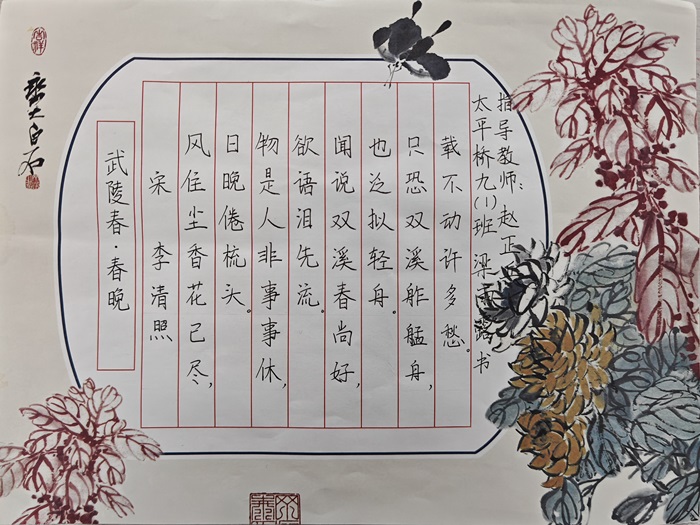 白石
武陵春·春晚
宋 李清照
风住尘香花己尽，
日晚倦梳头。
物是人非事事休，
欲语泪先流。
闻说双溪春尚好，
也泛拟轻舟。
只恐双溪舴艋舟，
载不动许多愁。
太平桥九(1)班 梁书
指导教师：赵正